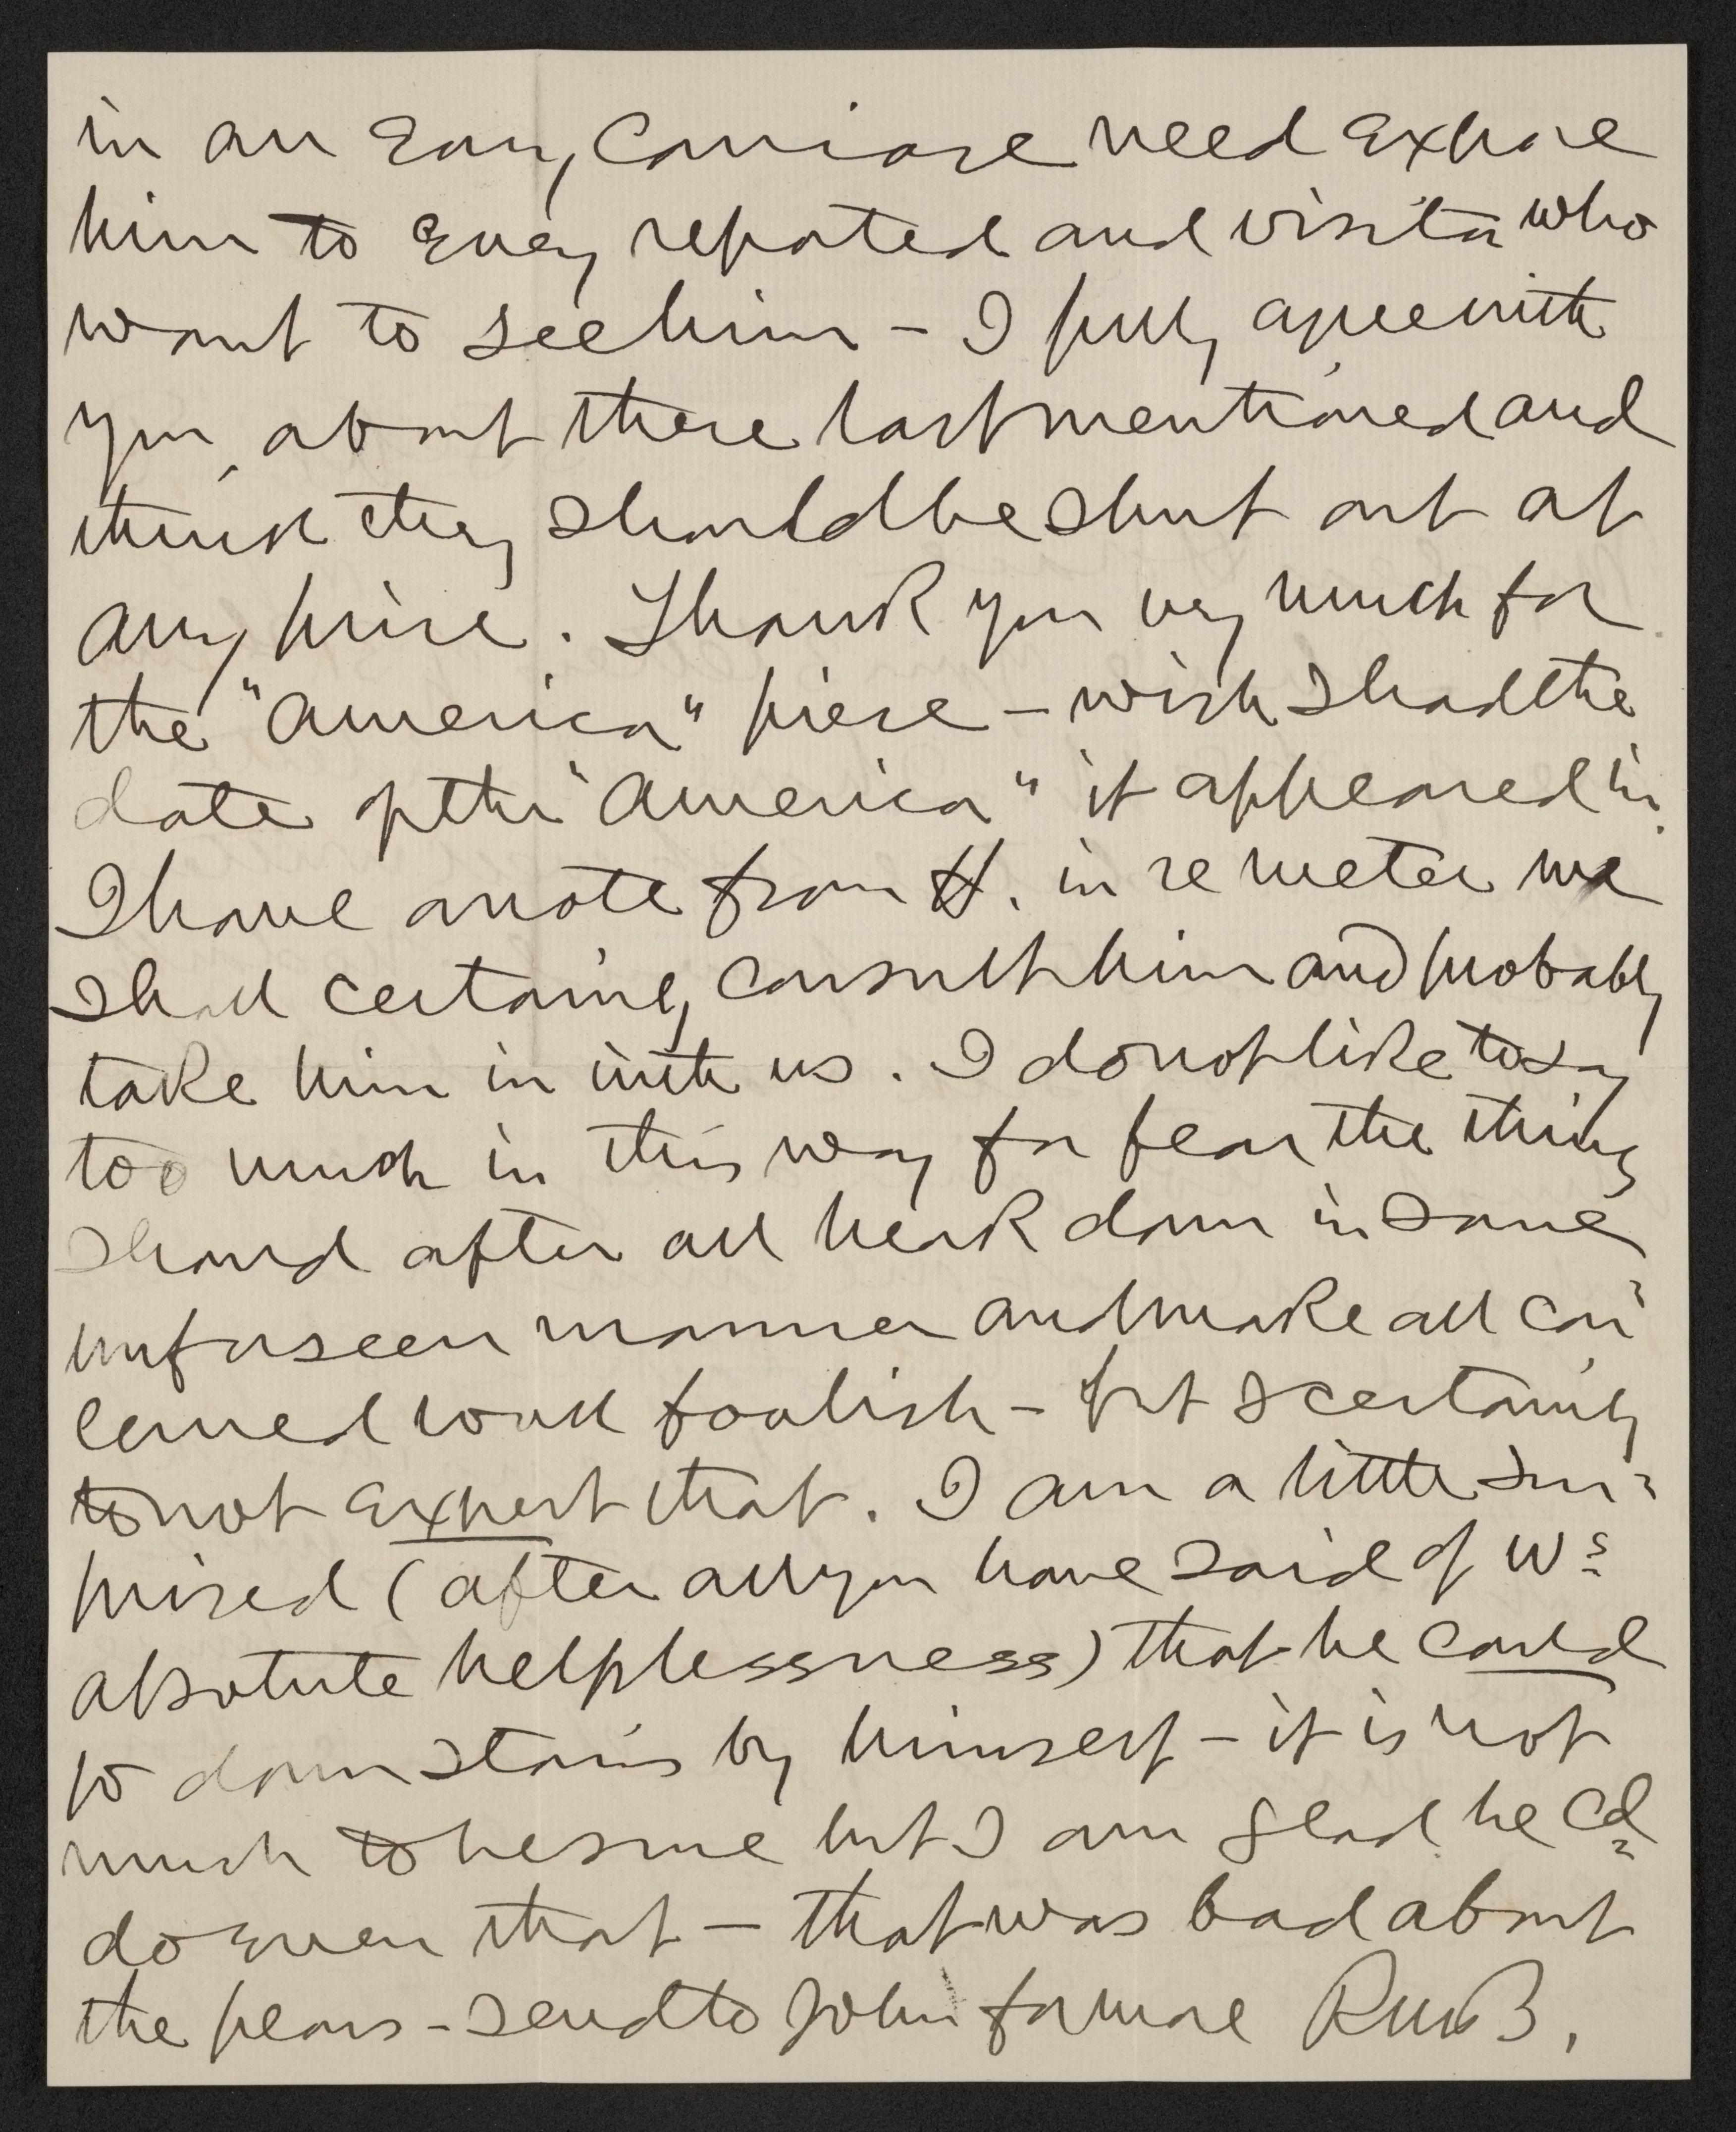 in an easy carriage need expose
him to every reported and visitor who
want to see him – I fully agree with
you about these last mentioned and
think they should be shut out at
any price. Thank you very much for
the "America" piece – wish I had the
date of the "America" it appeared in.
I have a note from H. in re meter we
shall certainly consult him and probably
take him in with us. I do not like to say
too much in this way for fear the thing
should after all break down in some
unforseen manner and make all con-
cerned look foolish – but I certainly
do not expect that. I am a little sur-
prised (after all you have said of Ws
absolute helplessness) that he could
go down stairs by himself – it is not
much to be sure but I am glad he cd
do even that – that was bad about
the pears – send to John for more RMB.